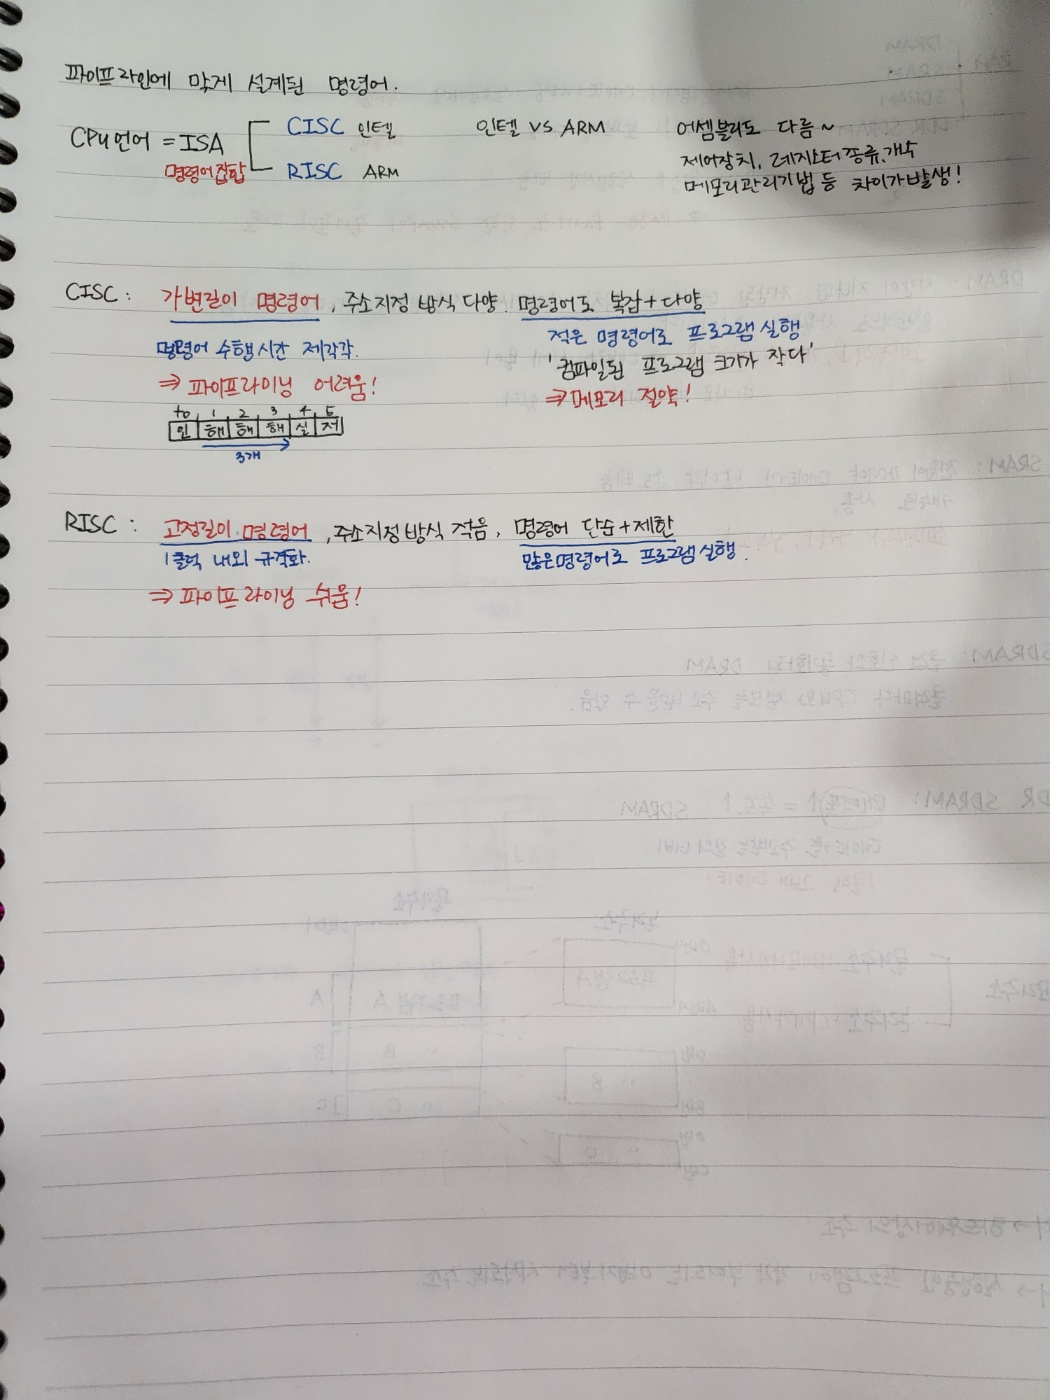 파이프라인에 맞게 설계된 명령어.
CPU언어 = ISA
명령어집합
CISC 인텔
RISC ARM
인텔 VS ARM
어셈블리도 다름~
제어장치, 레지스터종류,개수
메모리관리기법 등 차이가발생!
CISC : 가변길이 명령어, 주소지정 방식 다양. 명령어도 복잡+다양
명령어 수행시간 제각각.
⇒ 파이프라이닝 어려움!
적은 명령어로 프로그램 실행
'컴파일된 프로그램 크기가 작다'
⇒ 메모리 절약!
t0 1 2 3 4 5
인 해 해 해 실 저
3개
RISC : 고정길이 명령어, 주소지정방식 적음, 명령어 단순+제한
1클럭 내외 규격화.
많은명령어로 프로그램실행.
⇒ 파이프라이닝 쉬움!